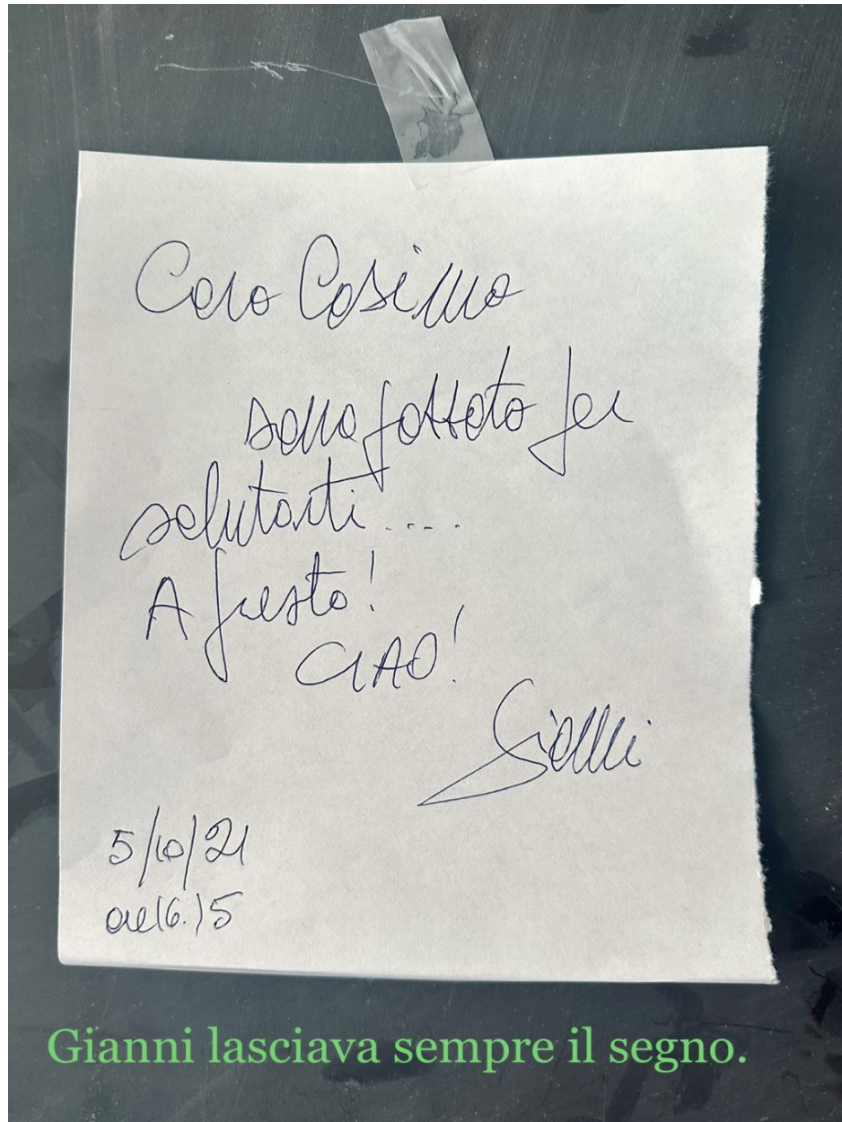 Caro Cosimo
sono passato per
salutarti.....
A presto!
CIAO!
Gianni
5/10/21
ore 16.15
Gianni lasciava sempre il segno.